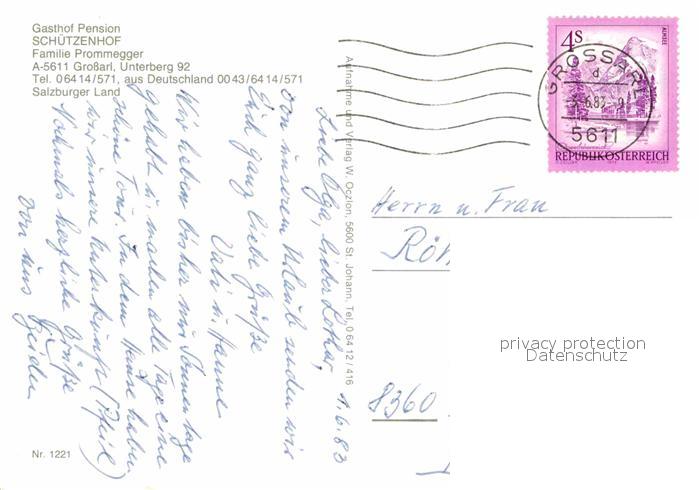 Gasthof Pension
SCHÜTZENHOF
Familie Prommegger
A-5611 Großarl, Unterberg 92
Tel. 0 64 14 / 571, aus Deutschland 00 43 / 64 14 / 571
Salzburger Land
1.6.83
Liebe Olga, lieber Lothar,
Von unserem Urlaub senden wir
Euch ganz liebe Grüße
Vati u. Hanne
Wir haben bisher nur Sonnentage
gehabt u. machen alle Tage eine
schöne Tour. In dem Hause haben
wir unsere Unterkunft (Pfeil)
Nochmals herzliche Grüße
von uns beiden
Nr. 1221
Aufnahme und Verlag W. Oczlon, 5600 St. Johann, Tel. 0 64 12 / 416
4 S
ALMSEE
REPUBLIK ÖSTERREICH
GROSSARL
d
6.83
5611
Herrn u. Frau
Röh
8360
privacy protection
Datenschutz